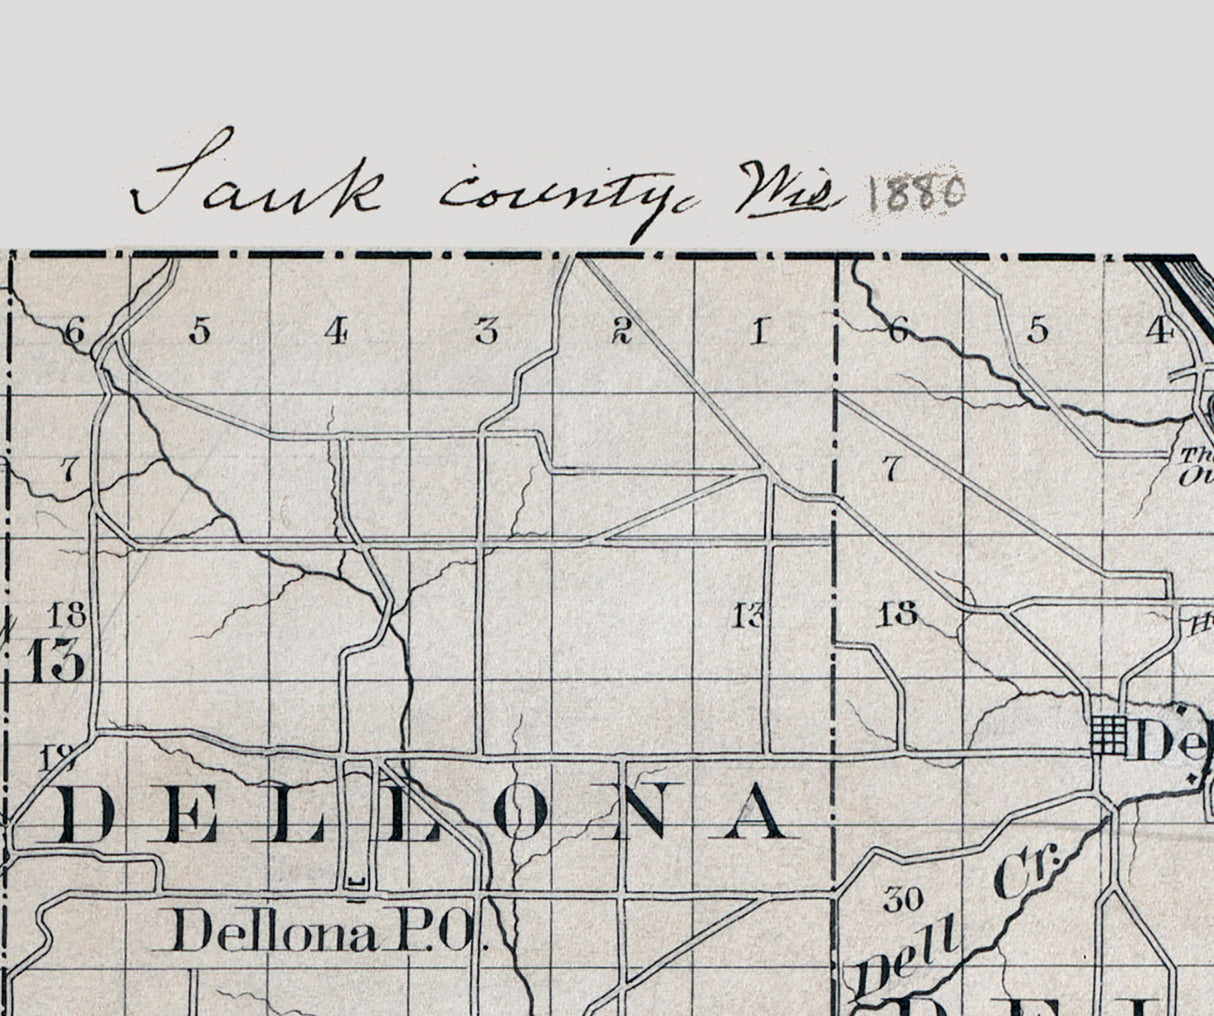 Sauk county, Wis. 1880
6 5 4 3 2 1 6 5 4
7 7
18 13 18
13
19 De
DELLONA
30 Dell Cr.
Dellona P.O.